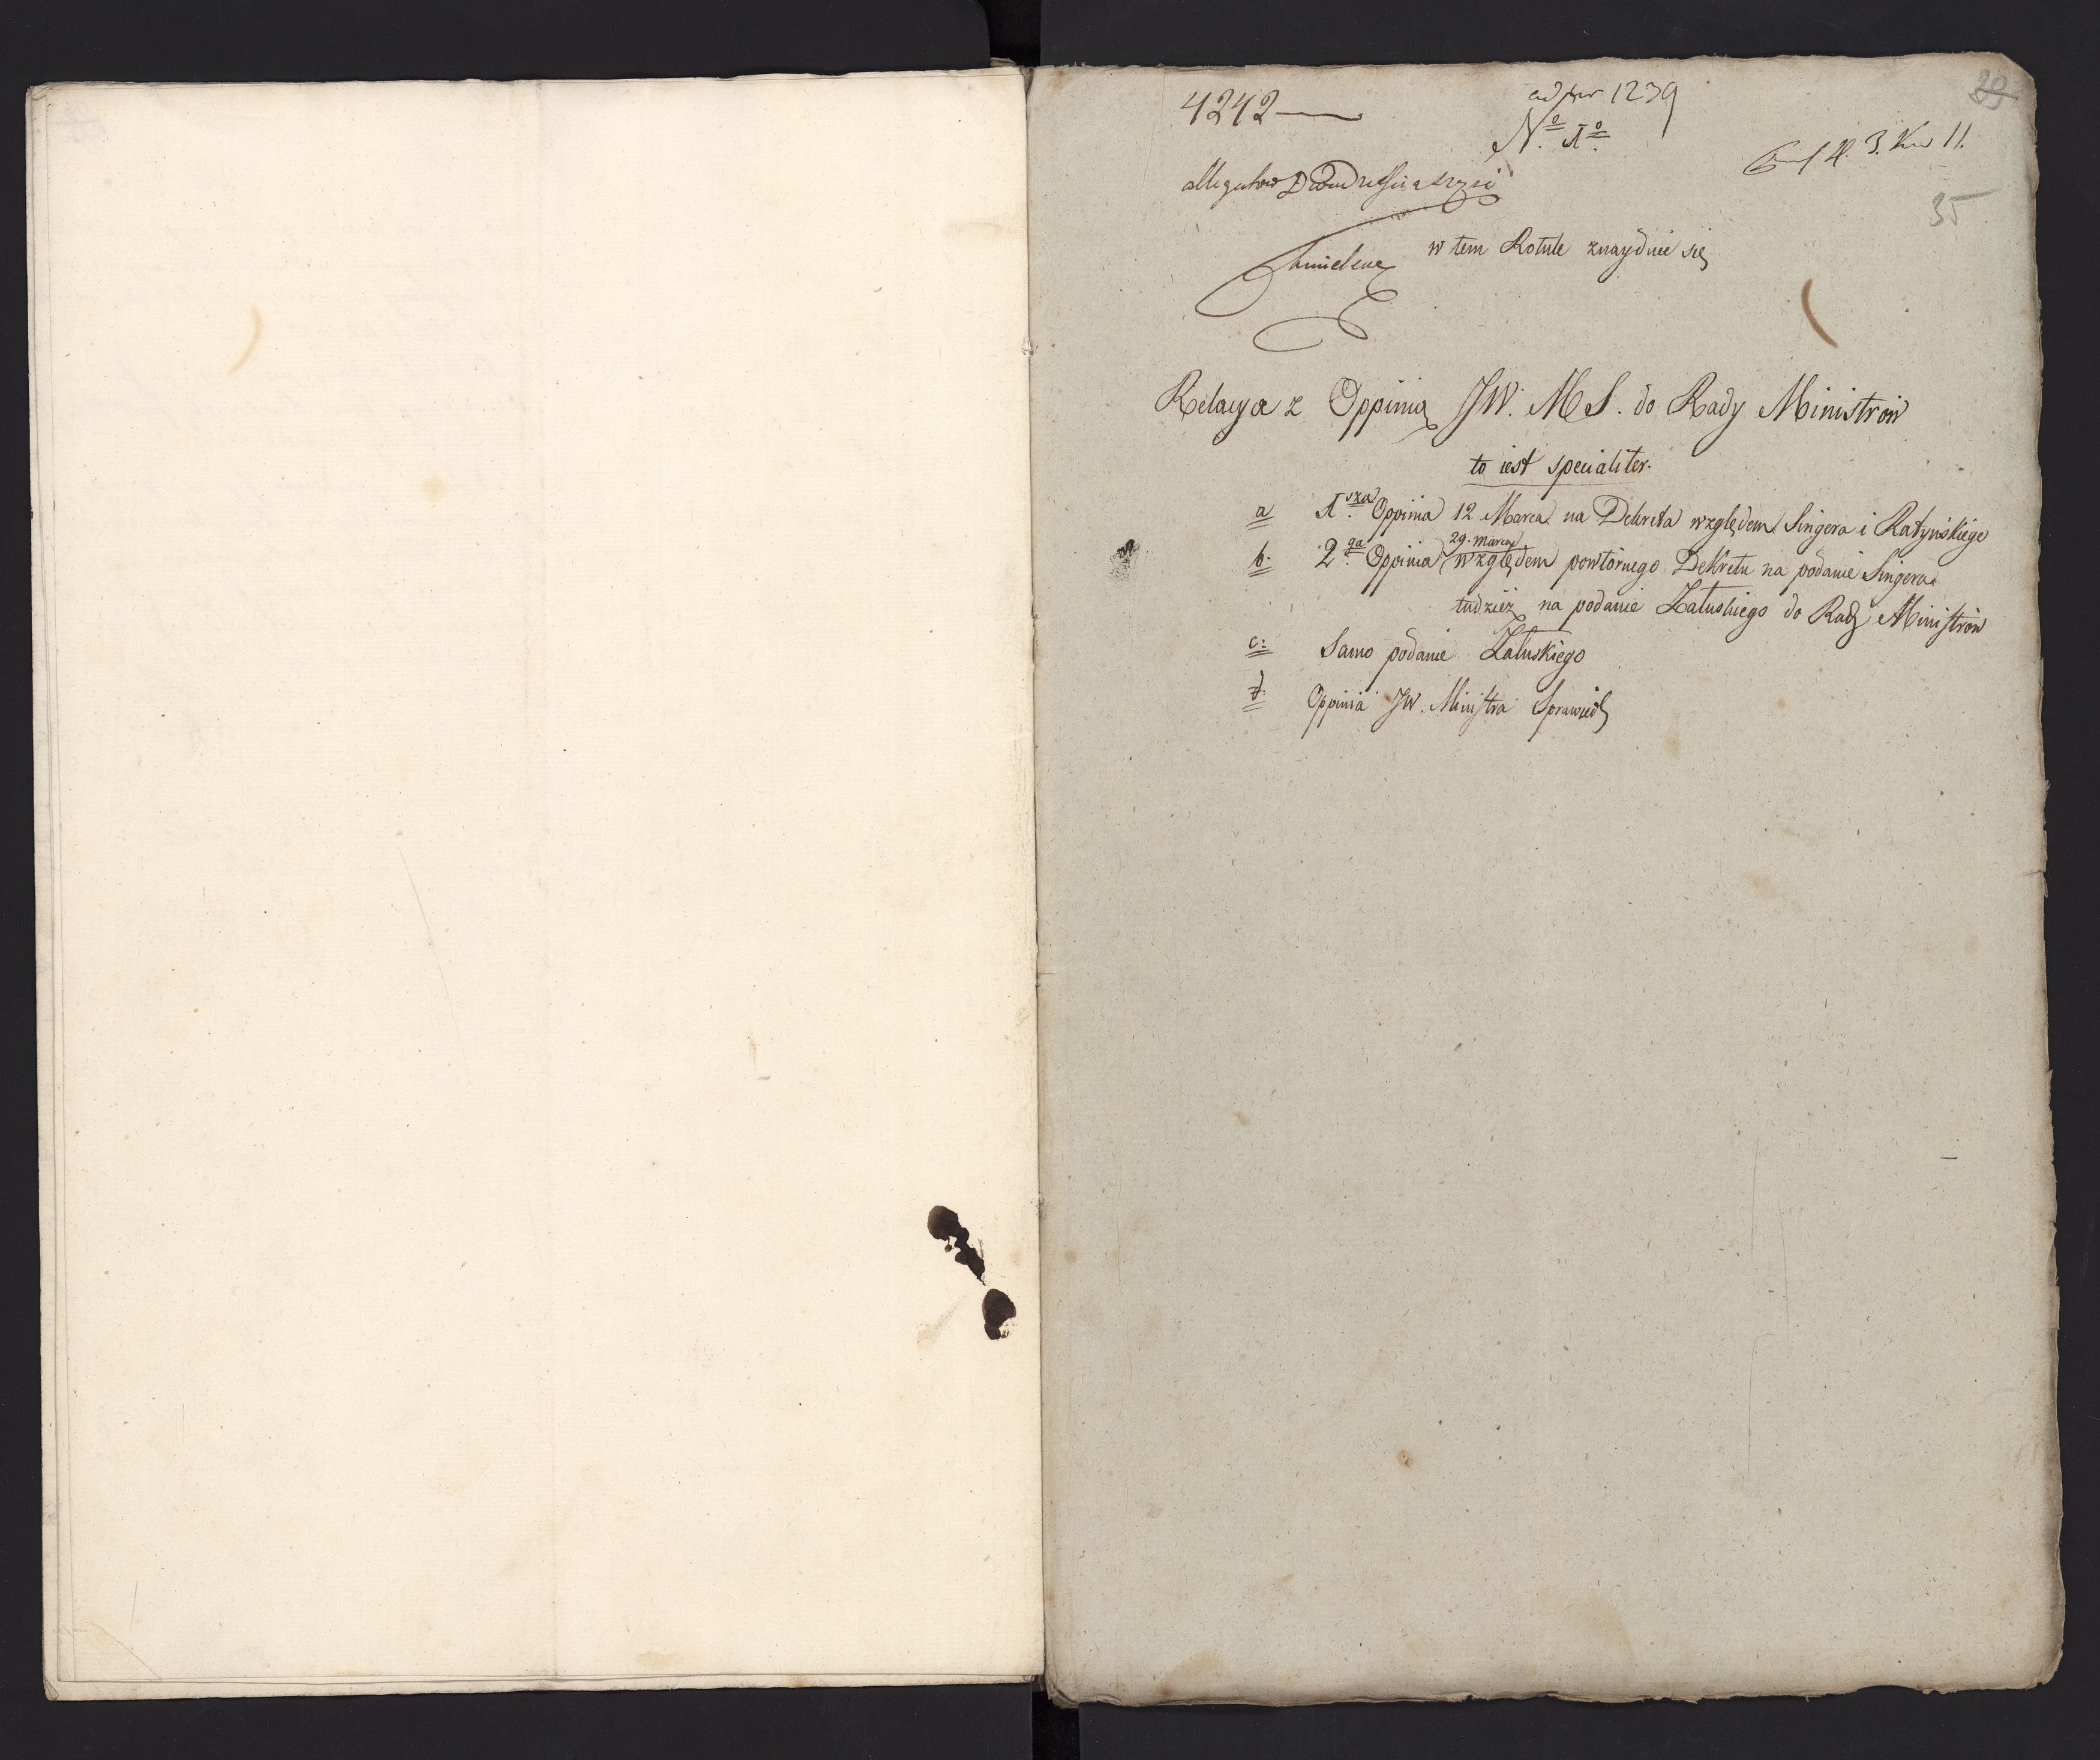 4242
ad nr 1239
Nº 1º
3. 11.
35
allegatow Dwadziescia trzy
w tem Rotule znayduie się
Relacya z Oppinią JW. M S. do Rady Ministrow
to iest specialiter.
a 1.sza Oppinia 12 Marca na Dekreta względem Singera i Ratyńskiego
b. 2.ga Oppinia 29. marca względem powtórnego Dekretu na podanie Singera
tudzież na podanie Załuskiego do Rady Ministrow
c: Samo podanie Załuskiego
d. Oppinia JW. Ministra Sprawied